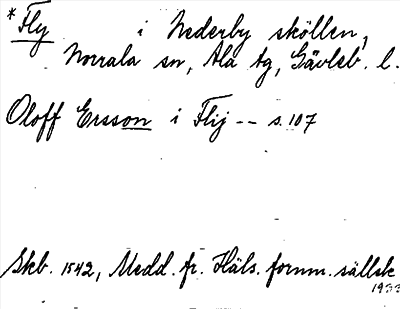 *Fly i Nederby sköllen,
Norrala sn, Ala tg, Gävleb. l.
Oloff Ersson i Flij -- s. 107
Skb. 1542, Medd. fr. Häls. fornm. sällsk
1933